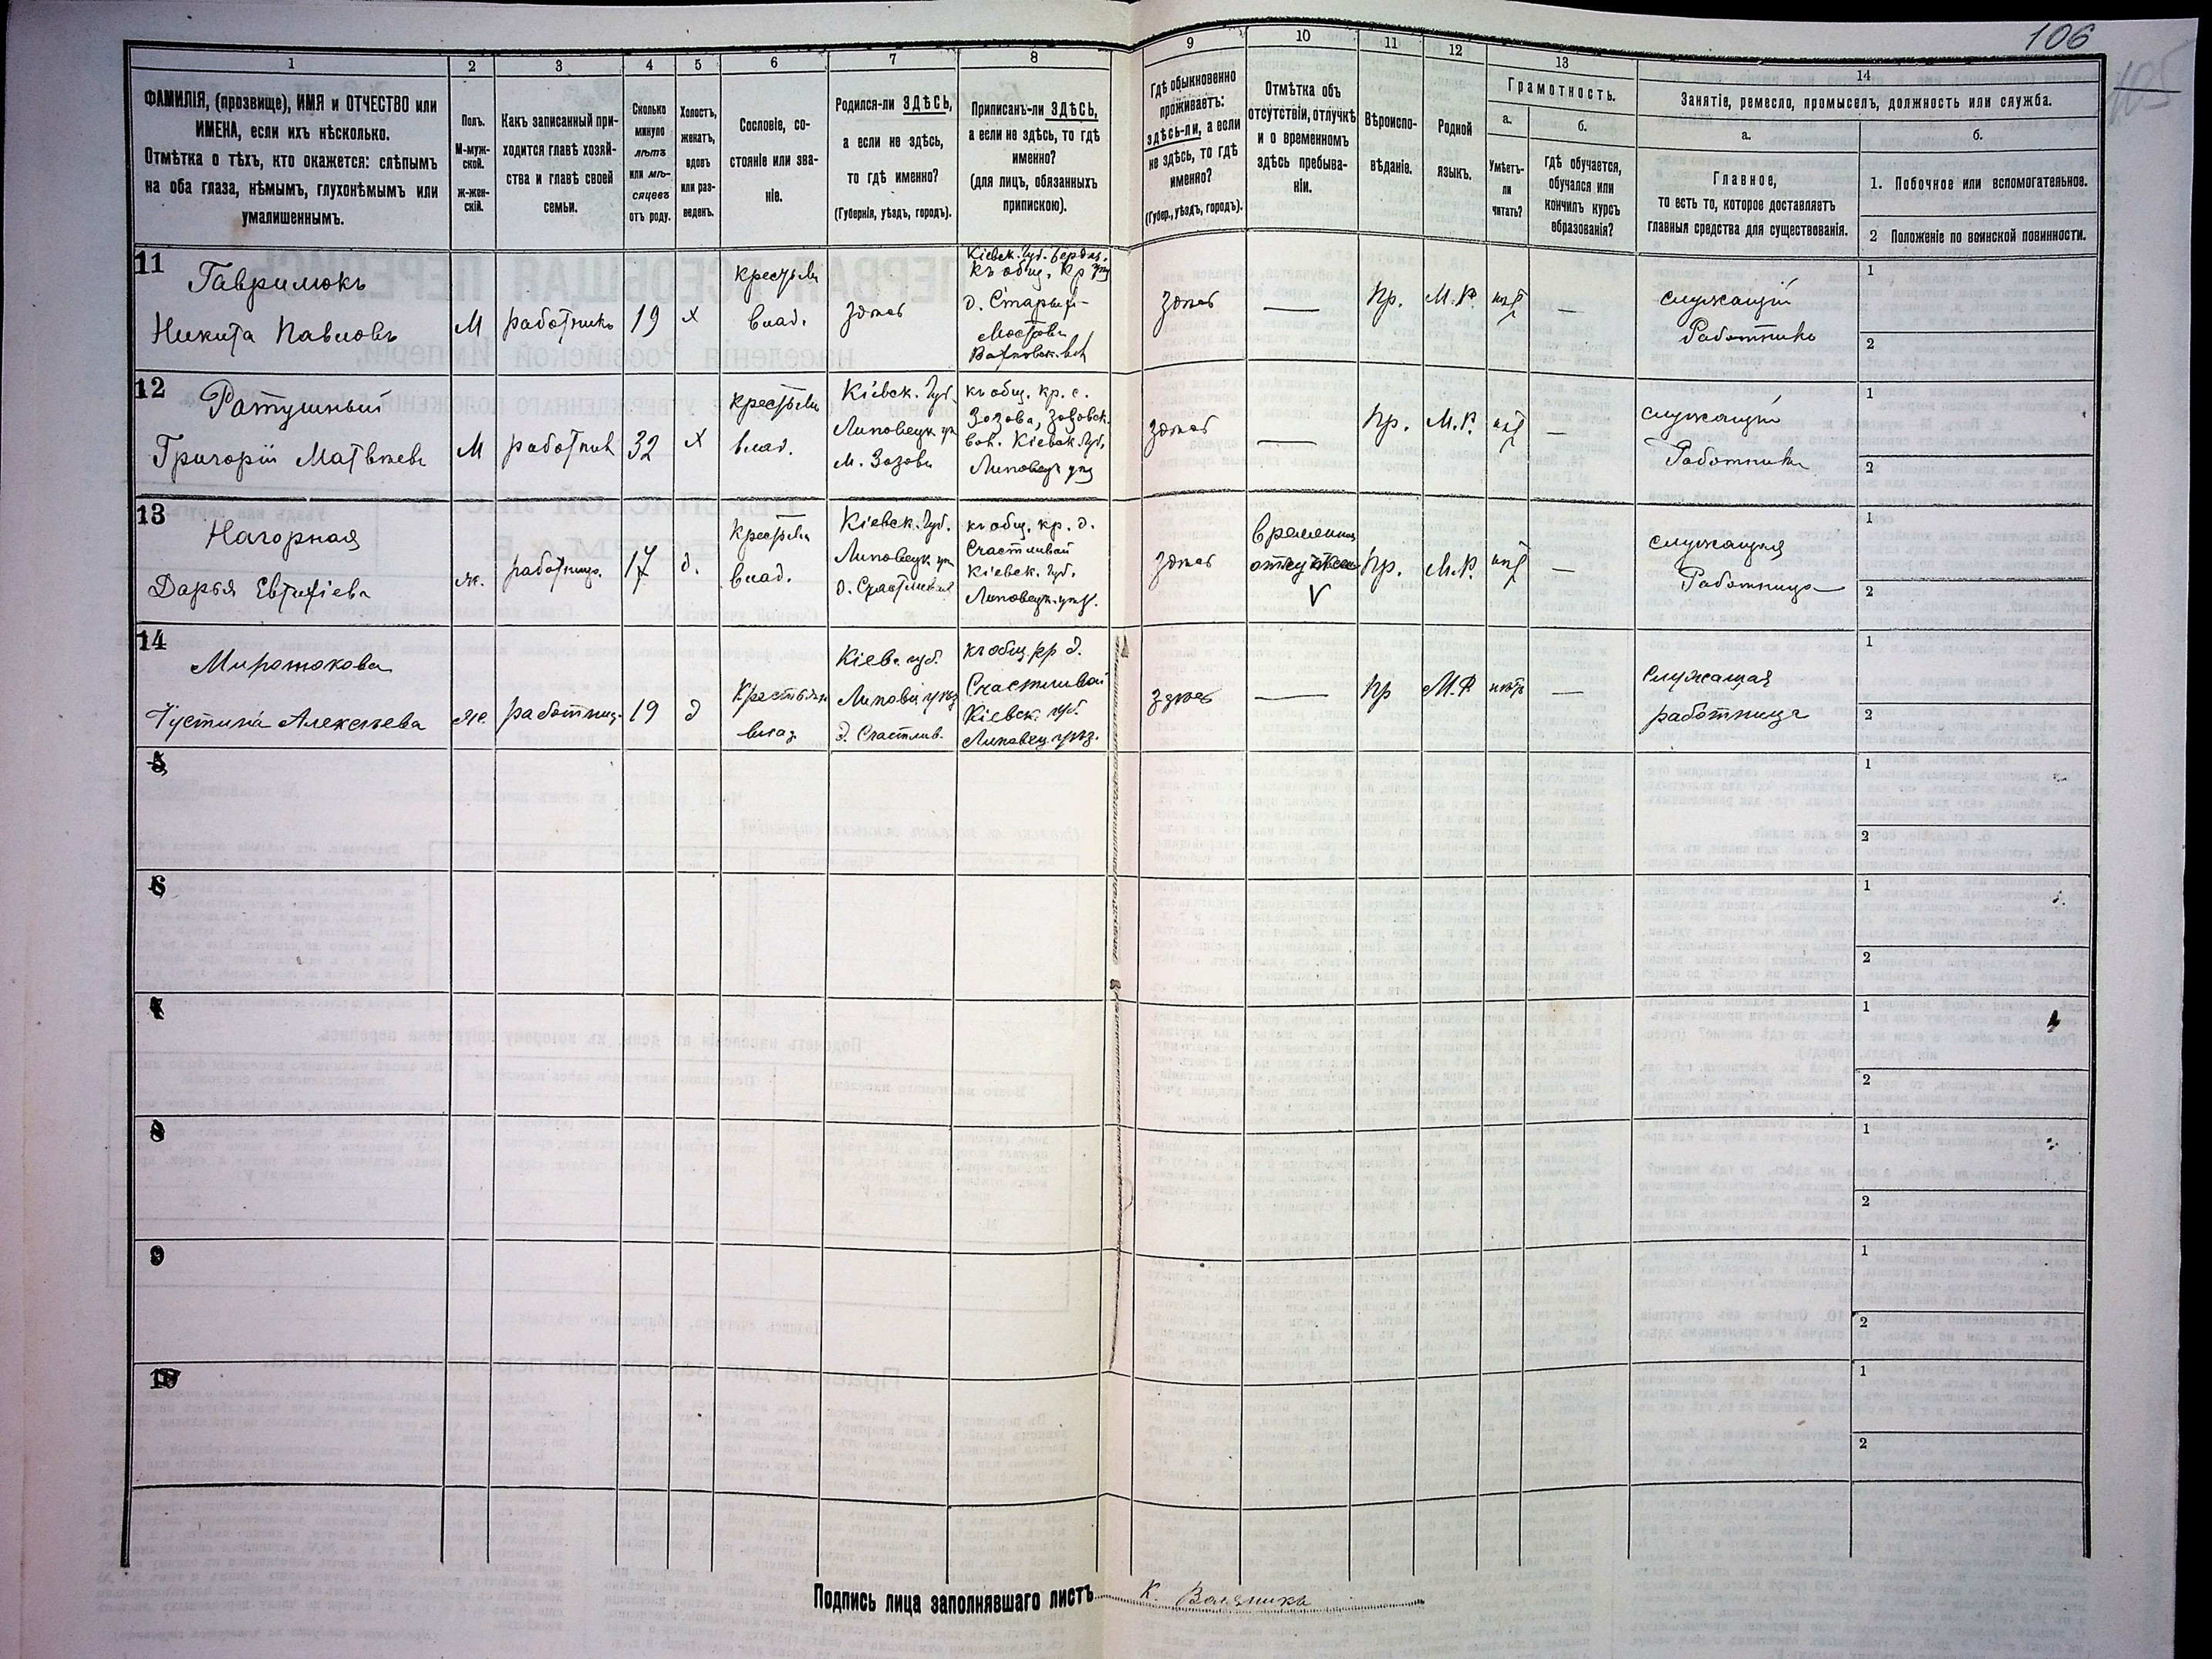 106
105
1
2
3
4
5
6
7
8
9
10
11
12
13
14
ФАМИЛІЯ, (прозвище), ИМЯ и ОТЧЕСТВО или
ИМЕНА, если ихъ нѣсколько.
Отмѣтка о тѣхъ, кто окажется: слѣпымъ
на оба глаза, нѣмымъ, глухонѣмымъ или
умалишеннымъ.
Полъ.
М-муж-
ской.
ж-жен-
скій.
Какъ записанный при-
ходится главѣ хозяй-
ства и главѣ своей
семьи.
Сколько
минуло
лѣтъ
или мѣ-
сяцевъ
отъ роду.
Холостъ,
женатъ,
вдовъ
или раз-
веденъ.
Сословіе, со-
стояніе или зва-
ніе.
Родился-ли ЗДѢСЬ,
а если не здѣсь,
то гдѣ именно?
(Губернія, уѣздъ, городъ).
Приписанъ-ли ЗДѢСЬ,
а если не здѣсь, то гдѣ
именно?
(для лицъ, обязанныхъ
припискою).
Гдѣ обыкновенно
проживаетъ:
здѣсь-ли, а если
не здѣсь, то гдѣ
именно?
(Губер., уѣздъ, городъ).
Отмѣтка объ
отсутствіи, отлучкѣ
и о временномъ
здѣсь пребыва-
ніи.
Вѣроиспо-
вѣданіе.
Родной
языкъ.
Грамотность.
а.
б.
Умѣетъ-
ли
читать?
гдѣ обучается,
обучался или
кончилъ курсъ
образованія?
Занятіе, ремесло, промыселъ, должность или служба.
а.
б.
Главное,
то есть то, которое доставляетъ
главныя средства для существованія.
1. Побочное или вспомогательное.
2 Положеніе по воинской повинности.
11
Гаврилюкъ
Никита Павловъ
М
работникъ
19
х
влад.
Кіевск. Губ.
д. Старый
Пр.
М. Р.
—
служащій
Работникъ
1
2
12
Ратушный
Григорій Матвѣевъ
М
32
х
влад.
Кіевск. Губ.
Липовецк
м. Зозовъ
къ общ. кр. с.
Зозова, Зозовск.
вол. Кіевск. Губ.
Липовецк
—
Пр.
М. Р.
—
служащій
Работникъ
1
2
13
Нагорная
Дарья
ж.
работница.
17
д.
влад.
Кіевск. Губ.
Липовецк
къ общ. кр. д.
Счастливай
Кіевск. Губ.
Пр.
М. Р.
V
—
служащая
Работница
1
2
14
Устина Алексѣева
ж.
19
д
влад
Кіевс. губ.
д. Счастлив.
къ общ. кр д.
Счастливай
Кіевск. губ.
Липовец. уѣз.
—
Пр
М. Р
—
Служащая
работница
1
2
5
1
2
6
1
2
1
2
8
1
2
9
1
2
10
1
2
Подпись лица заполнявшаго листъ